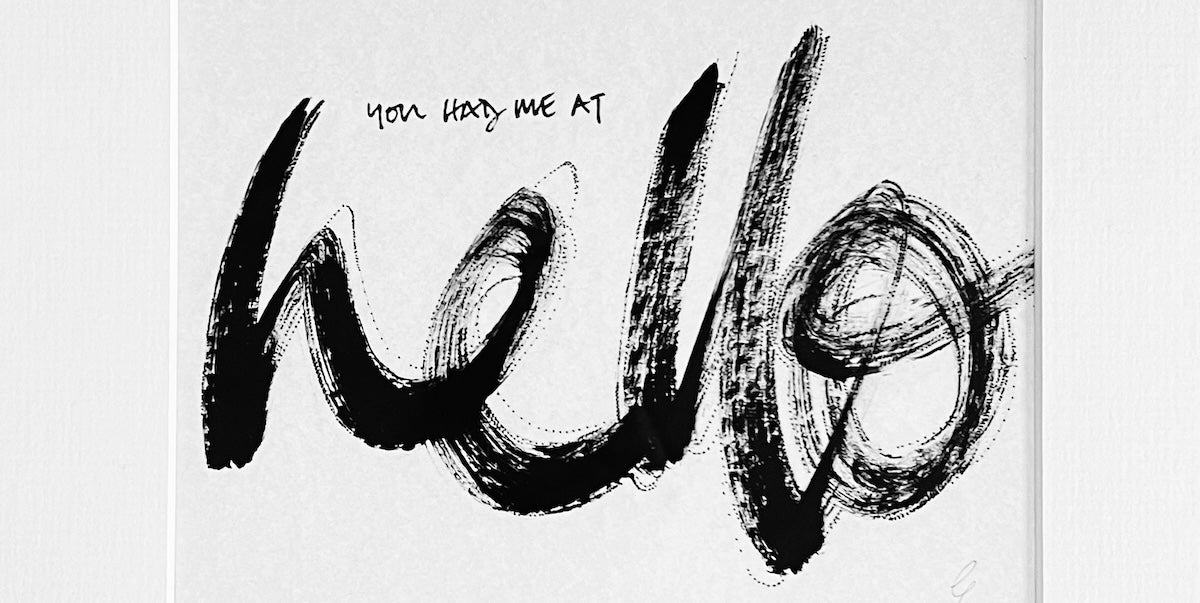 you HAD ME AT
hello